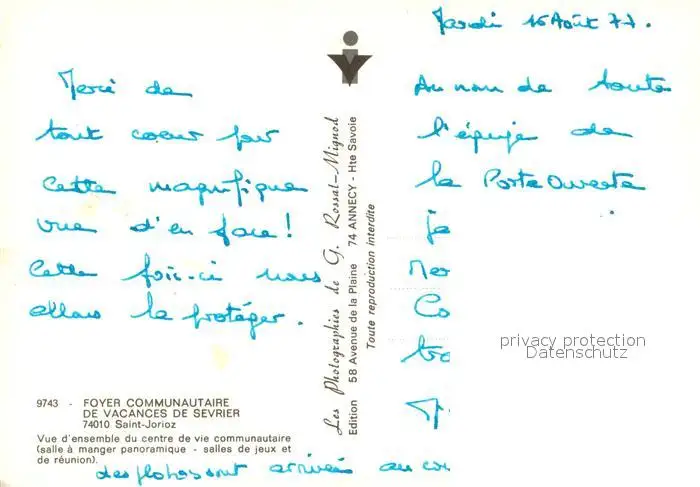 Mardi 16 Août 77.
Merci de
tout coeur pour
cette magnifique
vue d'en face!
Cette fois-ci nous
allons la protéger.
Au nom de toute
l'équipe de
la Porte Ouverte
je
Mer
Co
privacy protection
Datenschutz
9743 - FOYER COMMUNAUTAIRE
DE VACANCES DE SEVRIER
74010 Saint-Jorioz
Vue d'ensemble du centre de vie communautaire
(salle à manger panoramique - salles de jeux et
de réunion).
sont arrivés au
Les Photographies de G. Rossat-Mignod
Edition 58 Avenue de la Plaine 74 ANNECY - Hte Savoie
Toute reproduction interdite